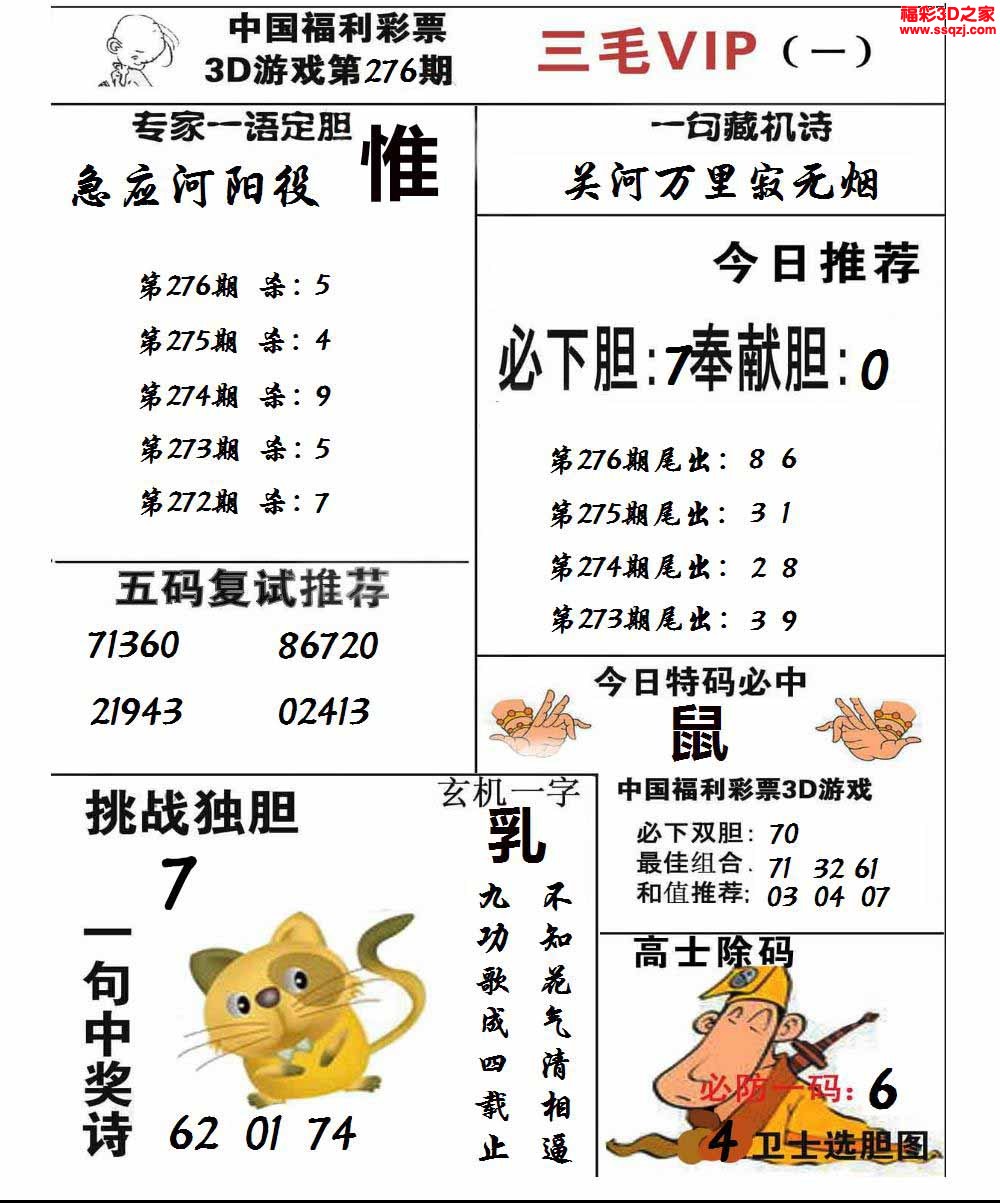 福彩3D之家
www.ssqzj.com
中国福利彩票
3D游戏第276期
三毛VIP（一）
专家一语定胆
惟
急应河阳役
第276期 杀：5
第275期 杀：4
第274期 杀：9
第273期 杀：5
第272期 杀：7
一句藏机诗
关河万里寂无烟
今日推荐
必下胆：7奉献胆：0
第276期尾出：8 6
第275期尾出：3 1
第274期尾出：2 8
第273期尾出：3 9
五码复试推荐
71360 86720
21943 02413
今日特码必中
鼠
挑战独胆
7
一句中奖诗
62 01 74
玄机一字
乳
不知花气清相逼
九功歌成四载止
中国福利彩票3D游戏
必下双胆：70
最佳组合．71 32 61
和值推荐：03 04 07
高士除码
必防一码：6
4卫士选胆图